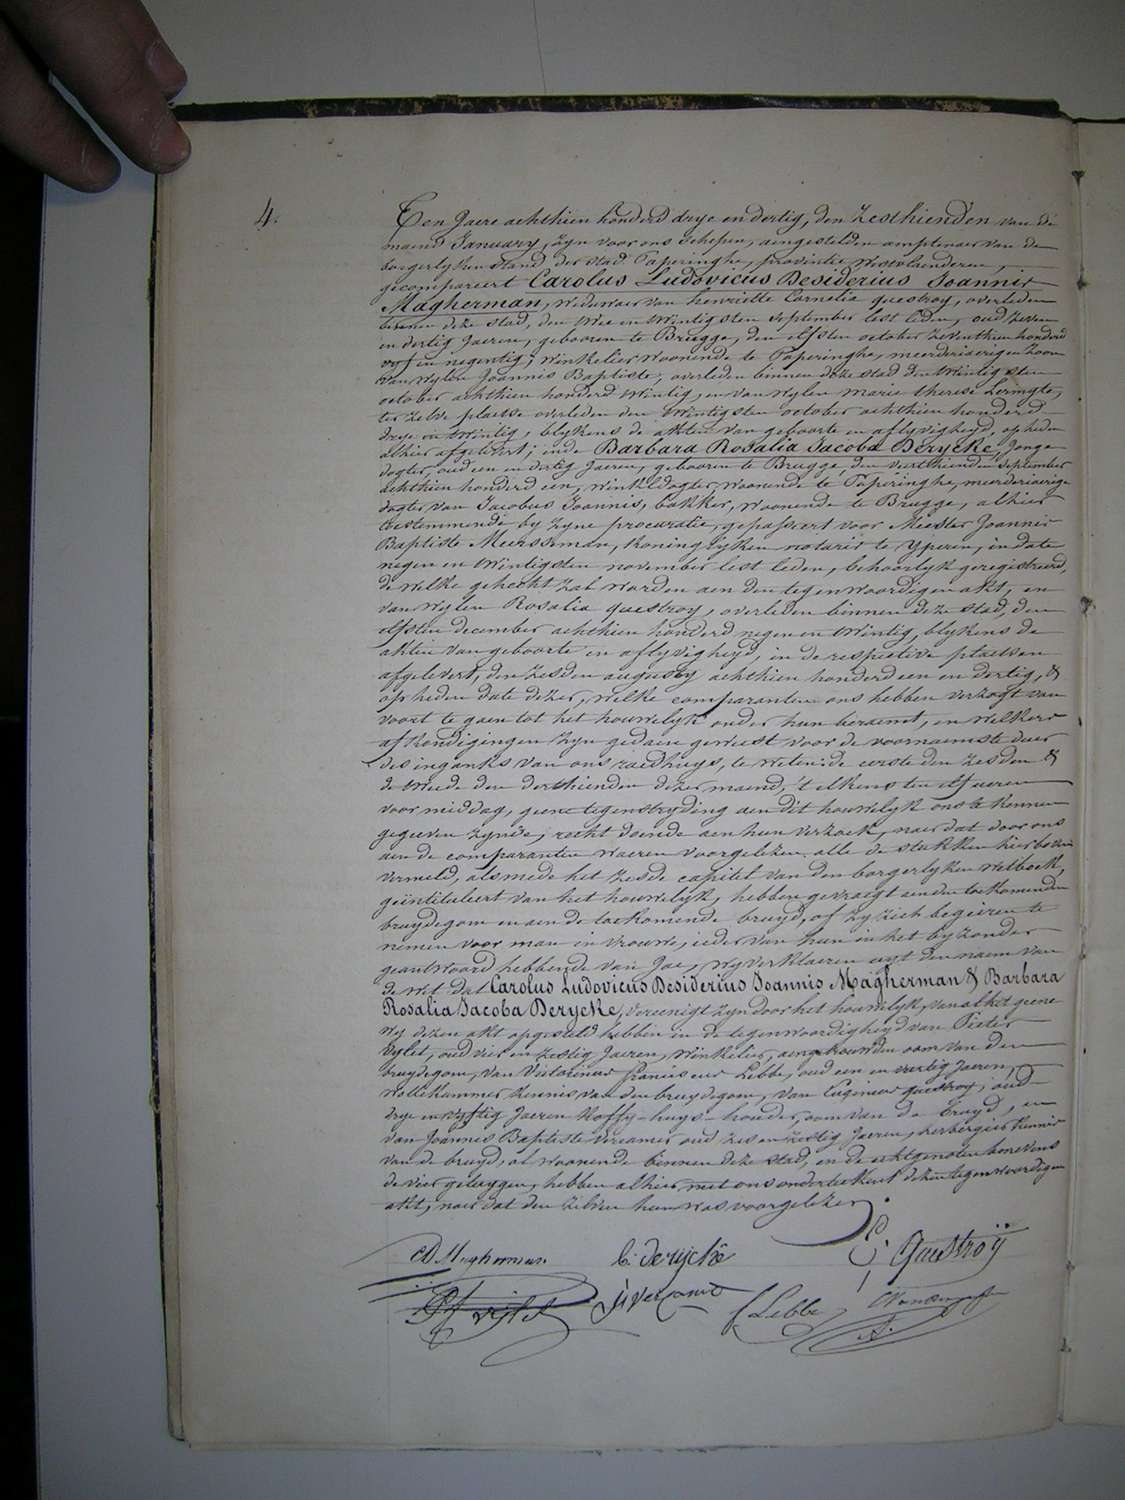 4.
Ten Jaere achthien honderd drye en dertig, den Zesthienden van de
maend January, zyn voor ons Schepen, aengestelden amptenaer van de
borgerlyken stand der stad Poperinghe, provintie Westvlaenderen,
gecompareert Carolus Ludovicus Desiderius Joannis
Magherman, Weduwaer van henriette Cornelia questroy, overleden
binnen deze stad, den twee en twintigsten september lest leden, oud zeven
en dertig Jaeren, gebooren te Brugge, den elfsten october zeventhien honderd
vyf en negentig, Winkelier woonende te Poperinghe, meerderjaerigen Zoon
van wylen Joannis Baptiste, overleden binnen deze stad den twintigsten
october achthien honderd twintig, en van wylen marie therese
ter zelve plaetse overleden den twintigsten october achthien honderd
drye en twintig, blykens de akten van geboorte en aflyvigheyd, op heden
alhier afgelevert; ende Barbara Rosalia Jacoba Derycke, Jonge-
dogter, oud een en dertig Jaeren, gebooren te Brugge, den veerthienden september
achthien honderd een, Winkeldogter, woonende te Poperinghe, meerderjaerige
dogter van Jacobus Joannis, bakker, woonende te Brugge, alhier
toestemmende by zyne procuratie, gepasseert voor Meester Joannis
Baptiste Meersseman, koninglyken notaris te Yperen, in date
negen en twintigsten november lest leden, behoorlyk geregistreerd,
de welke gehecht zal worden aen den tegenwoordigen akt, en
van wylen Rosalia questroy, overleden binnen deze stad, den
elfsten december achthien honderd negen en twintig, blykens de
akten van geboorte en aflyvigheyd, in de respective plaetsen
afgelevert, den zesden augusty achthien honderd een en dertig, &
op heden date dezer, welke comparanten ons hebben verzogt van
voort te gaen tot het houwelyk onder hun beraemt, en welkers
afkondigingen zyn gedaen geweest voor de voornaemste deur
des ingangs van ons raedhuys, te weten: de eerste den zesden &
de tweede den derthienden dezer maend, 't elkens ten elf uren
voormiddag, geene tegenstryding aen dit houwelyk ons te kennen
gegeeven zynde, recht doende aen hun verzoek, naer dat door ons
aen de comparanten waeren voorgelezen alle de stukken hierboven
vermeld, alsmede het zesde capittel van den borgerlyken wetboek,
geintituleert van het houwelyk, hebben gevraegt aen den toekomenden
bruydegom en aen de toekomende bruyd, of zy zich begeeren te
nemen voor man en vrouwe, ieder van hun in het byzonder
geantwoord hebbende van Jae, wy verklaeren uyt den naem van
de wet dat Carolus Ludovicus Desiderius Joannis Magherman & Barbara
Rosalia Jacoba Derycke, vereenigt zyn door het houwelyk, van al het geene
wy dezen akt opgesteld hebben in de tegenwoordigheyd van Pieter
Vylet, oud vier en zestig Jaeren, Winkelier, aengetrouwden oom van den
bruydegom, van Victorinus franciscus Lebbe, oud een en veertig Jaeren,
Wollekammer, kennis van den bruydegom, van Eugenius questroy, oud
drye en vyftig Jaeren Koffy-huys-houder, oom van de bruyd, en
van Joannis Baptiste Vereamer oud zes en zestig Jaeren, herbergier kennis
van de bruyd, al woonende binnen deze stad, en de echtgenoten benevens
de vier getuygen, hebben alhier met ons onderteekent dezen tegenwoordigen
akt, naer dat den zelven hun was voorgelezen
CD Magherman B: derycke E: questroÿ
vijlet
F Lebbe